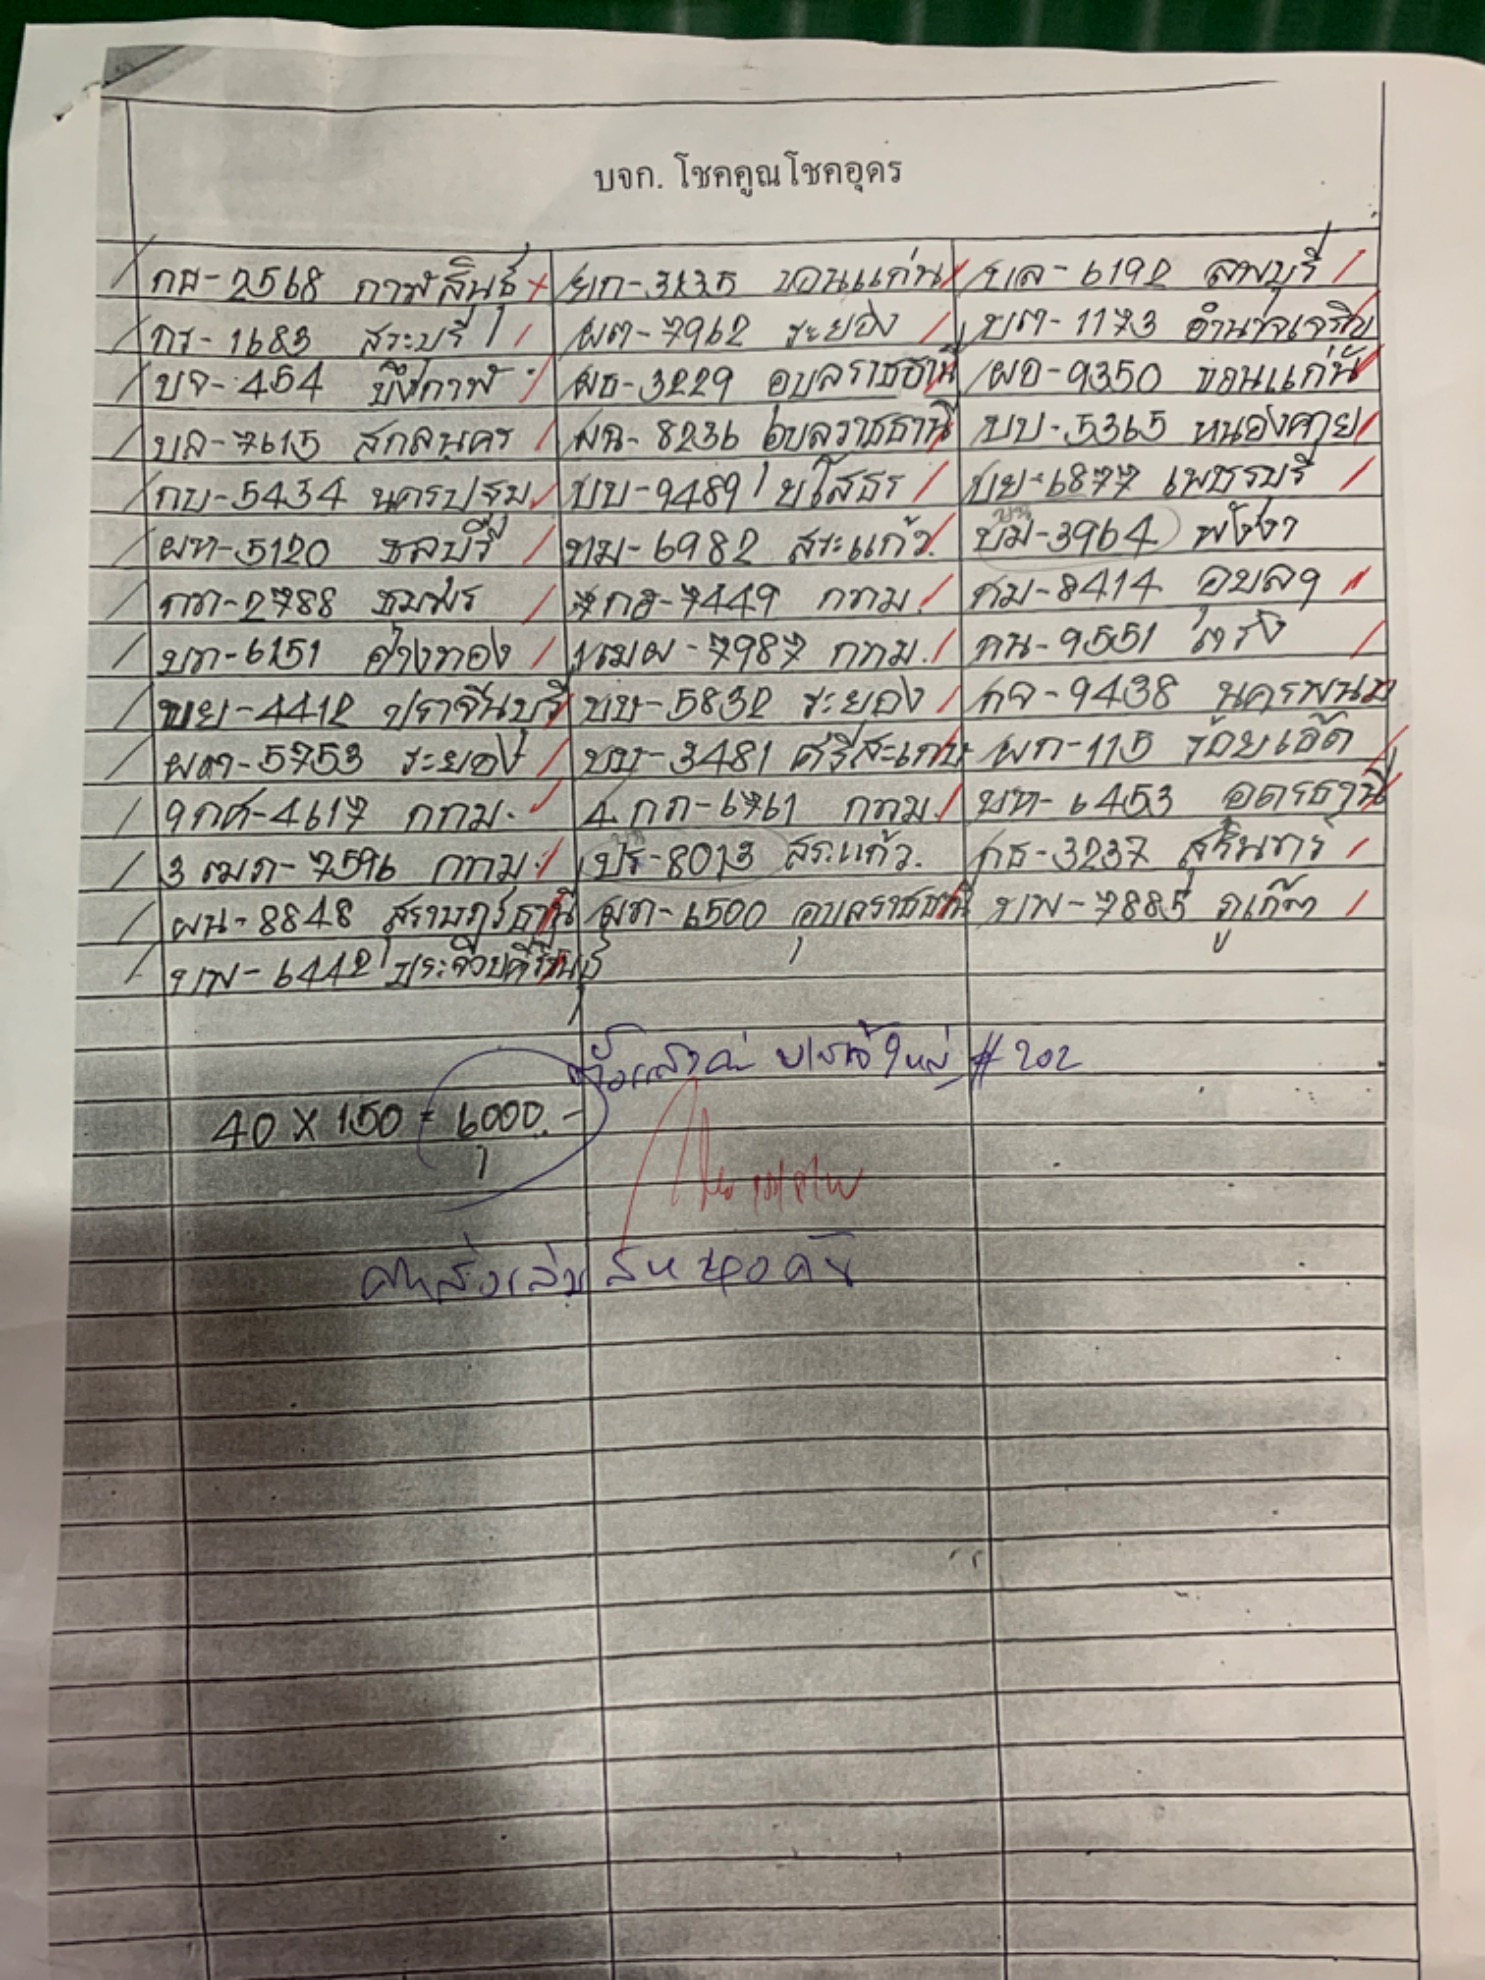 บจก. โชคคูณโชคอุดร
กธ-2568 กาฬสินธุ์ ยก-3235 ขอนแก่น ขเล-6192 ลพบุรี
กร-1683 สระบุรี ผต-7962 ระยอง บต-1173 อำนาจเจริญ
บจ-454 บึงกาฬ ผธ-3229 อุบลราชธานี ผอ-9350 ขอนแก่น
บล-7615 สกลนคร ผฉ-8236 อุบลราชธานี บป-5365 หนองคาย
กบ-5434 นครปฐม บบ-9489 ยโสธร ขย-6877 เพชรบุรี
ผท-5120 ชลบุรี ทม-6982 สระแก้ว บม-3964 พังงา
กท-2788 ชุมพร 7กฮ-7449 กทม. กม-8414 อุบลฯ
บท-6151 อ่างทอง 1ฒผ-7987 กทม. กน-9551 ตรัง
ขย-4412 ปราจีนบุรี ขบ-5832 ระยอง กจ-9438 นครพนม
ผต-5753 ระยอง บบ-3481 ศรีสะเกษ ผก-115 ร้อยเอ็ด
9กศ-4617 กทม. 4กภ-6761 กทม. บท-6453 อุดรธานี
3ฒภ-7596 กทม. ปร-8013 สระแก้ว. กธ-3237 สุรินทร์
ผน-8848 สุราษฎร์ธานี ผท-6500 อุบลราชธานี ขพ-7885 ภูเก็ต
บพ-6442 ประจวบคีรีขันธ์
# 202
40 X 150 = 6000.-